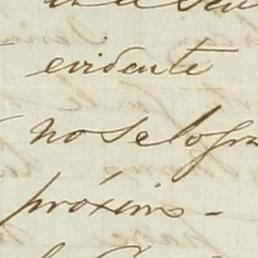 evidente
no se logra
próximo -